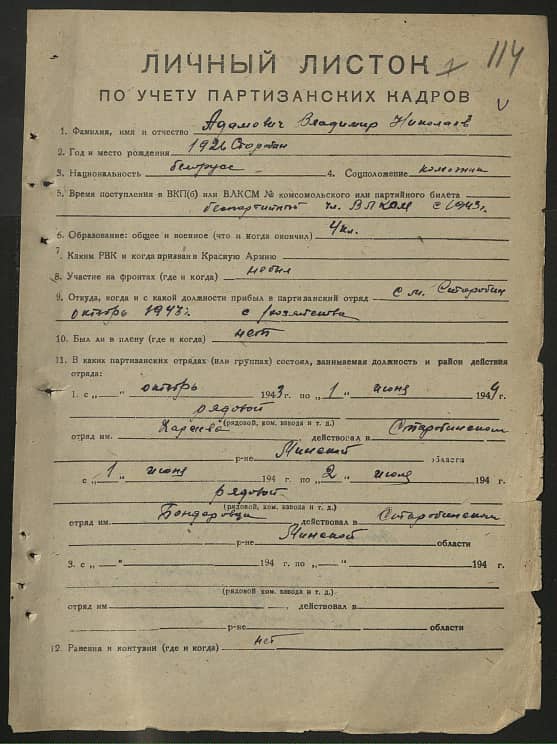 114
ЛИЧНЫЙ ЛИСТОК
ПО УЧЕТУ ПАРТИЗАНСКИХ КАДРОВ
1. Фамилия, имя и отчество Адамович Владимир Николаев
2. Год и место рождения 1926 Старобин
3. Национальность белорус 4. Соцположение
5. Время поступления в ВКП(б) или ВЛКСМ № комсомольского или партийного билета
беспартийный чл. ВЛКСМ с 1943г.
6. Образование: общее и военное (что и когда окончил) 4кл.
7. Каким РВК и когда призван в Красную Армию
8. Участие на фронтах (где и когда) не был
9. Откуда, когда и с какой должности прибыл в партизанский отряд с м. Старобин
октябрь 1943г. с хозяйства
10. Был ли в плену (где и когда) нет
11. В каких партизанских отрядах (или группах) состоял, занимаемая должность и район действия
отряда:
1. с „ — “ октябрь 1943 г. по „ 1 “ июня 1944 г.
рядовой
(рядовой, ком. взвода и т. д.)
отряд им. действовал в Старобинском
р-не Минской области
с „ 1 “ июня 194 г. по „ 2 “ июля 194 г.
рядовой
(рядовой, ком. взвода и т. д.)
отряд им. Бондаровца действовал в Старобинском
р-не Минской области
3. с „ — “ 194 г. по „ — “ 194 г.
(рядовой ком. взвода и т. д.)
отряд им. действовал в
р-не области
12. Ранения и контузии (где и когда) нет